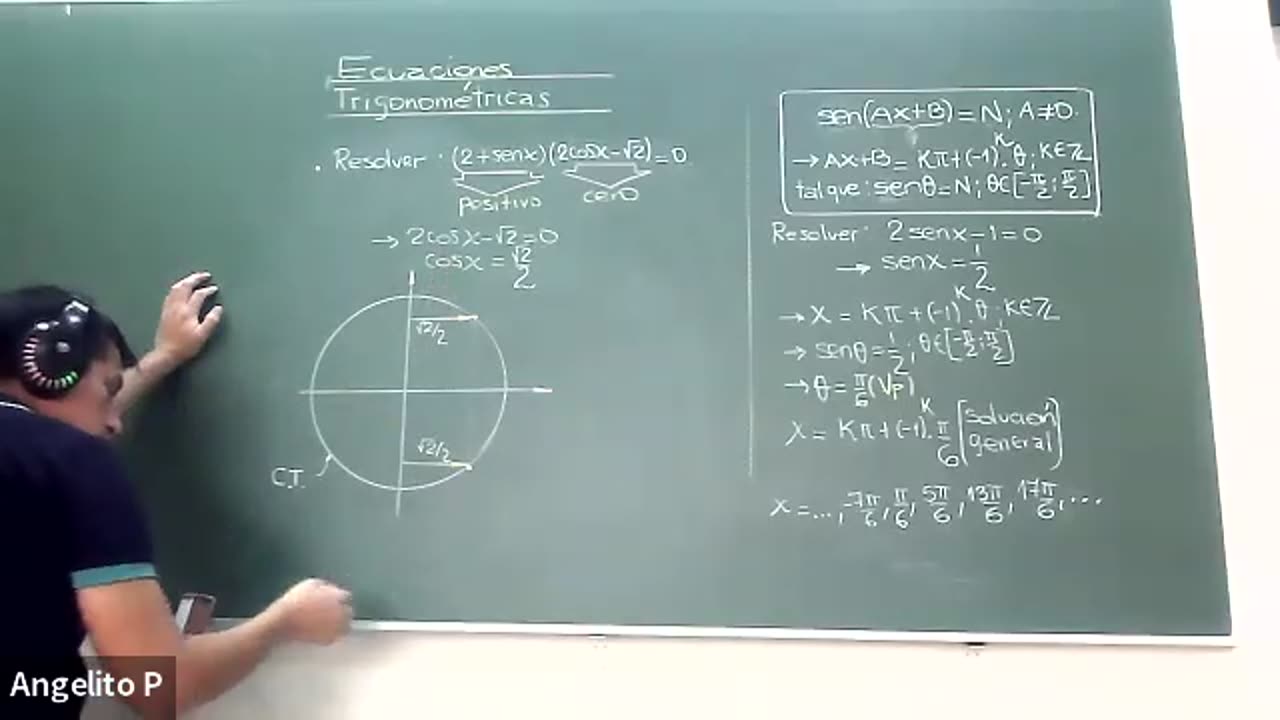 Ecuaciones
Trigonométricas
. Resolver : (2+senx)(2cosx-√2)=0
positivo cero
→ 2cosx-√2=0
cosx = √2/2
√2/2
√2/2
C.T.
sen(Ax+B)=N; A≠0.
→Ax+B= Kπ+(-1)^K.θ; K∈ℤ
tal que: senθ=N; θ∈[-π/2; π/2]
Resolver: 2senx-1=0
→ senx=1/2
→ x = Kπ+(-1)^K.θ; K∈ℤ
→ senθ=1/2; θ∈[-π/2; π/2]
→ θ=π/6 (Vp)
x= Kπ+(-1)^K.π/6 [solución
general]
x=..., -7π/6, π/6, 5π/6, 13π/6, 17π/6, ...
Angelito P